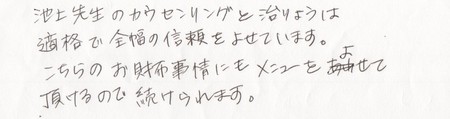 池上先生のカウンセリングと治りょうは
適格で全幅の信頼をよせています。
こちらのお財布事情にもメニューをよせて
頂けるので続けられます。